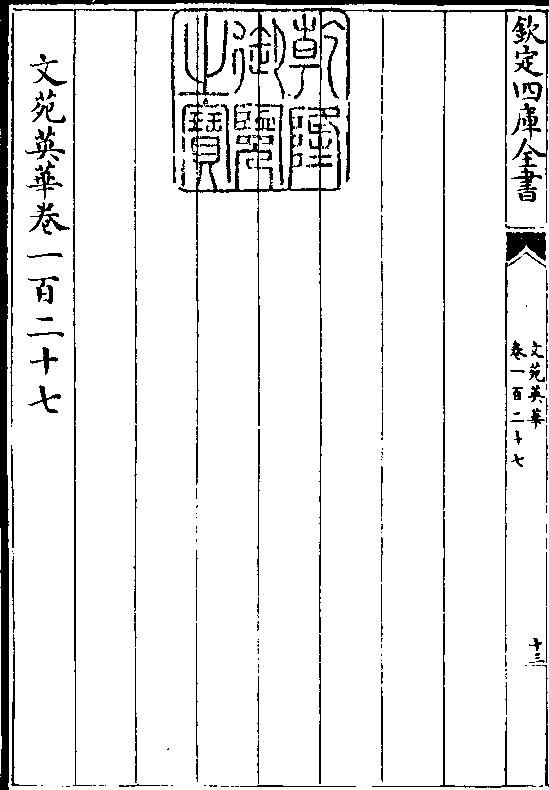 欽定四庫全書
文苑英華
卷一百二十七
十三
乾隆
御覽
之寶
文苑英華卷一百二十七